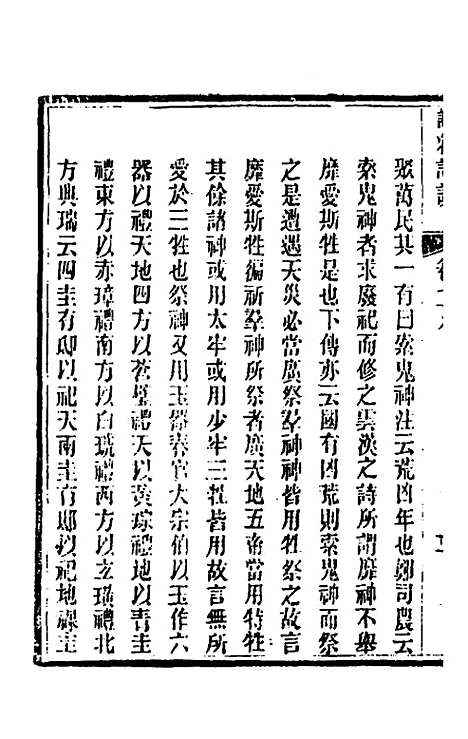 聚萬民其一有曰索鬼神注云荒凶年也鄭司農云
索鬼神者求廢祀而修之雲漢之詩所謂靡神不舉
靡愛斯牲是也下傳亦云國有凶荒則索鬼神而祭
之是遭遇天災必當廣祭羣神神皆用牲祭之故言
靡愛斯牲徧祈羣神所祭者廣天地五帝當用特牲
其餘諸神或用太牢或用少牢三牲皆用故言無所
愛於三牲也祭神又用玉器春官大宗伯以玉作六
器以禮天地四方以蒼璧禮天以黃琮禮地以青圭
禮東方以赤璋禮南方以白琥禮西方以玄璜禮北
方典瑞云四圭有邸以祀天兩圭有邸以祀地祼圭